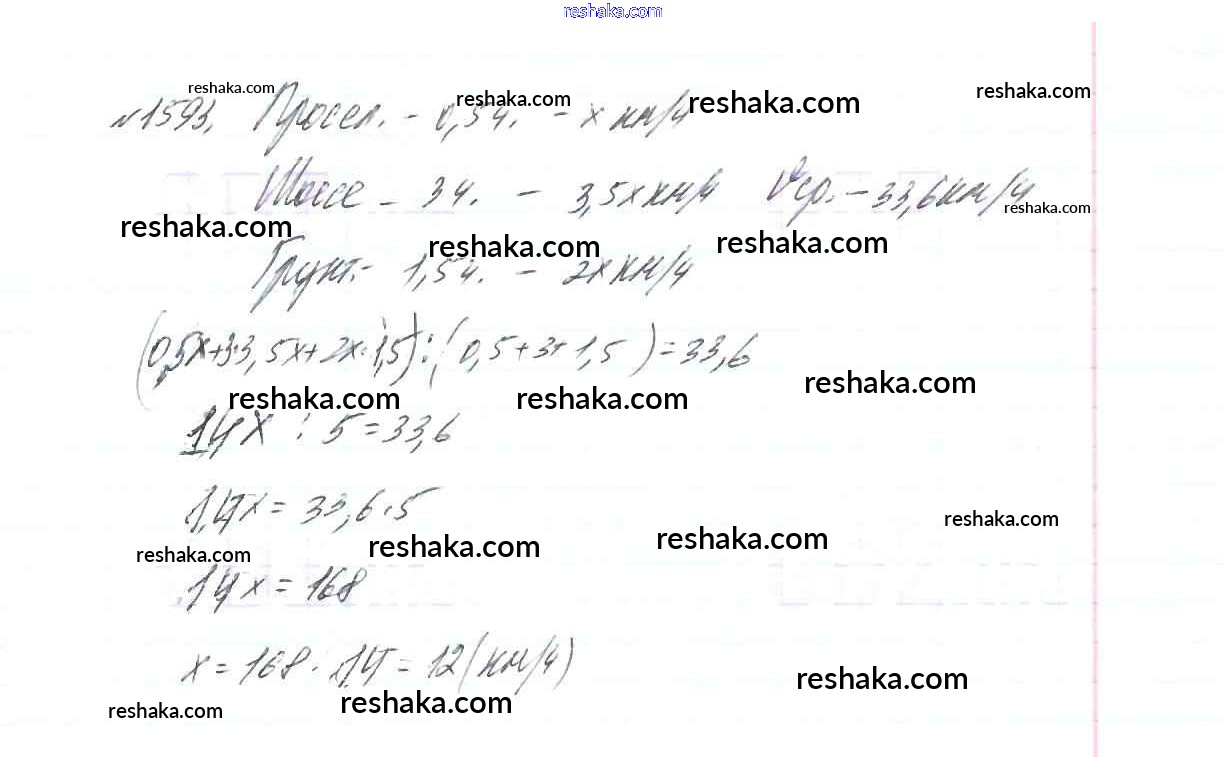 reshaka.com
№1593. Просел. - 0,5ч. - х км/ч
reshaka.com reshaka.com reshaka.com reshaka.com
Шоссе - 3ч. - 3,5х км/ч Vср. - 33,6км/ч
reshaka.com reshaka.com reshaka.com reshaka.com
Грунт.- 1,5ч. - 2х км/ч
(0,5х+3·3,5х+2х·1,5):(0,5+3+1,5)=33,6
reshaka.com reshaka.com reshaka.com
14х : 5=33,6
14х = 33,6·5
reshaka.com reshaka.com reshaka.com reshaka.com
14х = 168
х = 168 : 14 = 12 (км/ч)
reshaka.com reshaka.com reshaka.com